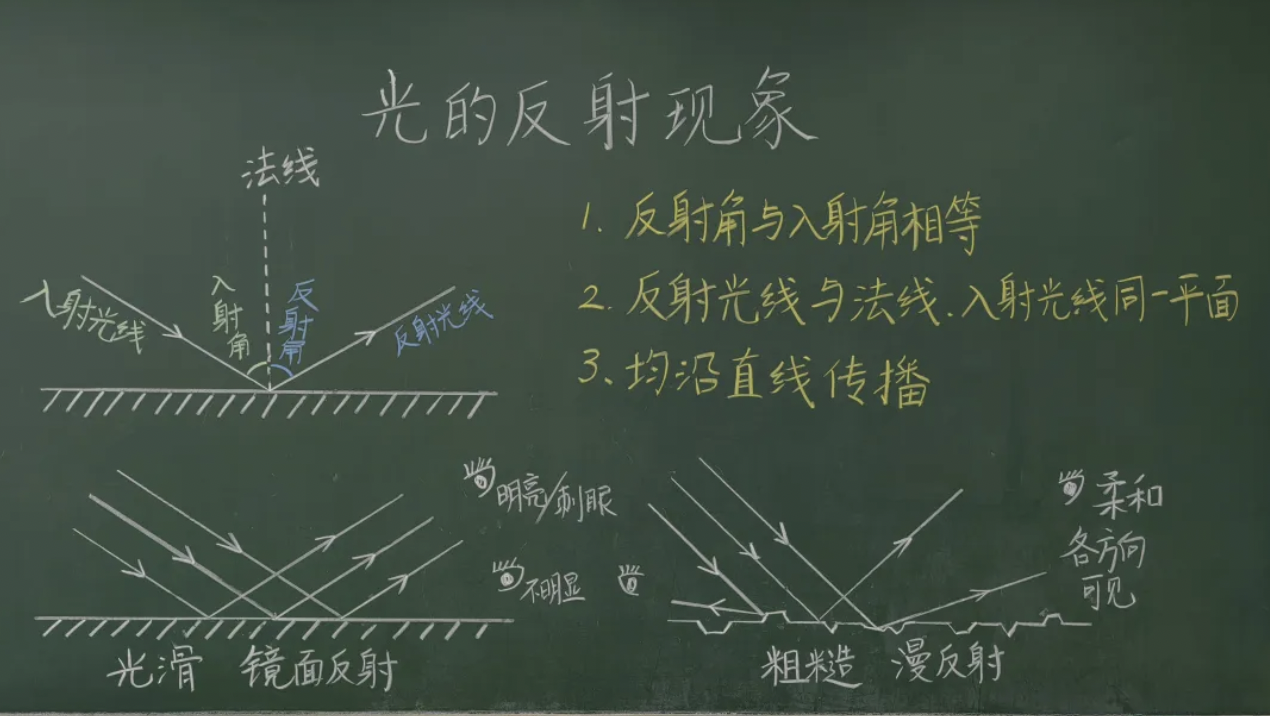 光的反射现象
法线
1. 反射角与入射角相等
2. 反射光线与法线、入射光线同一平面
3、均沿直线传播
入射光线
入射角
反射角
反射光线
明亮/刺眼
不明显
光滑 镜面反射
柔和
各方向
可见
粗糙 漫反射